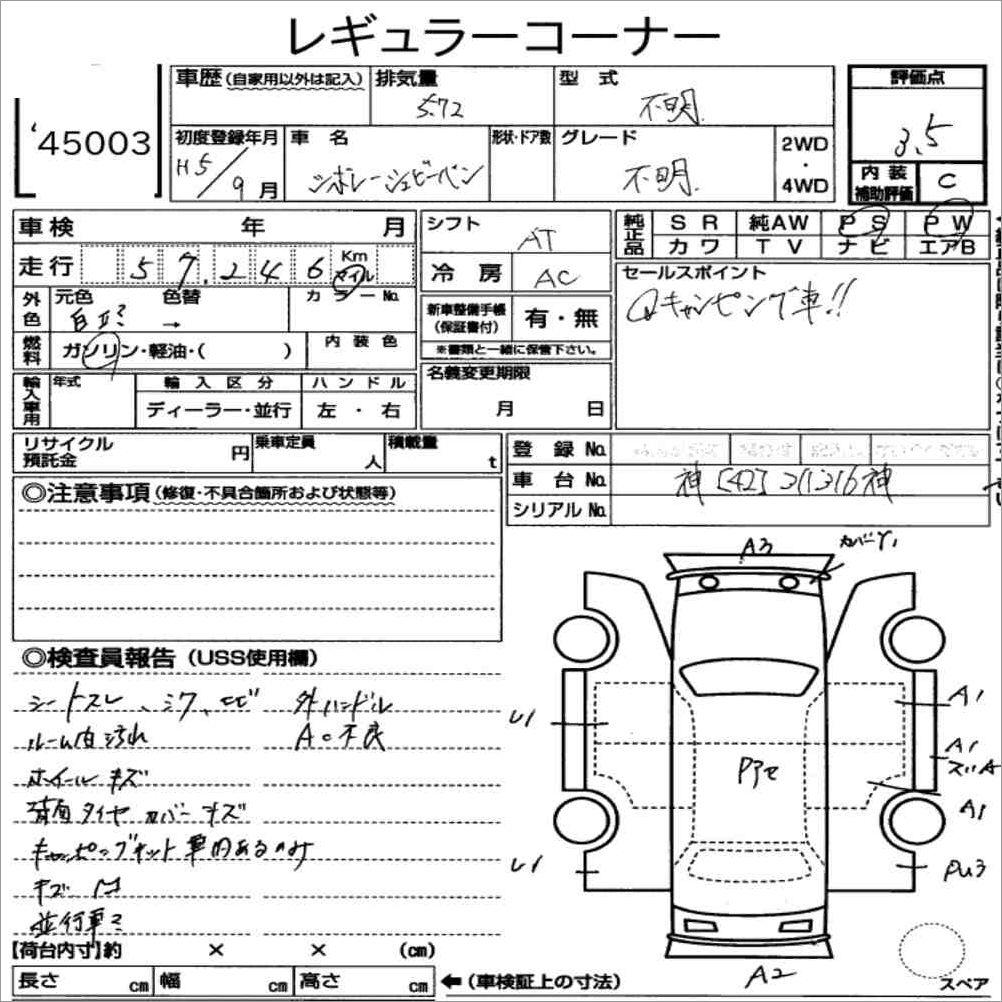 レギュラーコーナー
'45003
車歴(自家用以外は記入) 排気量 型式 評価点
5.72 不明 3.5
初度登録年月 車名 形状・ドア数 グレード 2WD・4WD
H5/9月 シボレーシェビーバン 不明 内装補助評価 C
車検 年 月 シフト AT 純正品 SR 純AW PS PW
カワ TV ナビ エアB
走行 57.246 Km マイル 冷房 AC セールスポイント
キャンピング車!!
外色 元色 色替 カラーNo. 新車整備手帳(保証書付) 有・無
白 →
※書類と一緒に保管下さい。
燃料 ガソリン・軽油・( ) 内装色
輸入車用 年式 輸入区分 ハンドル 名義変更期限
ディーラー・並行 左・右 月 日
リサイクル預託金 円 乗車定員 人 積載量 t 登録No.
車台No. 神[42]31316神
シリアルNo.
◎注意事項(修復・不具合箇所および状態等)
A3 カバーY1
◎検査員報告(USS使用欄)
シートスレ、シワ、ヒビ 外ハンドル
ルーム内汚れ A○不良
ホイールキズ
背負タイヤカバーキズ
キャンピングキット専用あるのみ
キズ 凹
並行車
U1 A1
A1
Pアセ A1
U1 PU3
A2
【荷台内寸】約 × × (cm)
長さ cm 幅 cm 高さ cm ←(車検証上の寸法) スペア